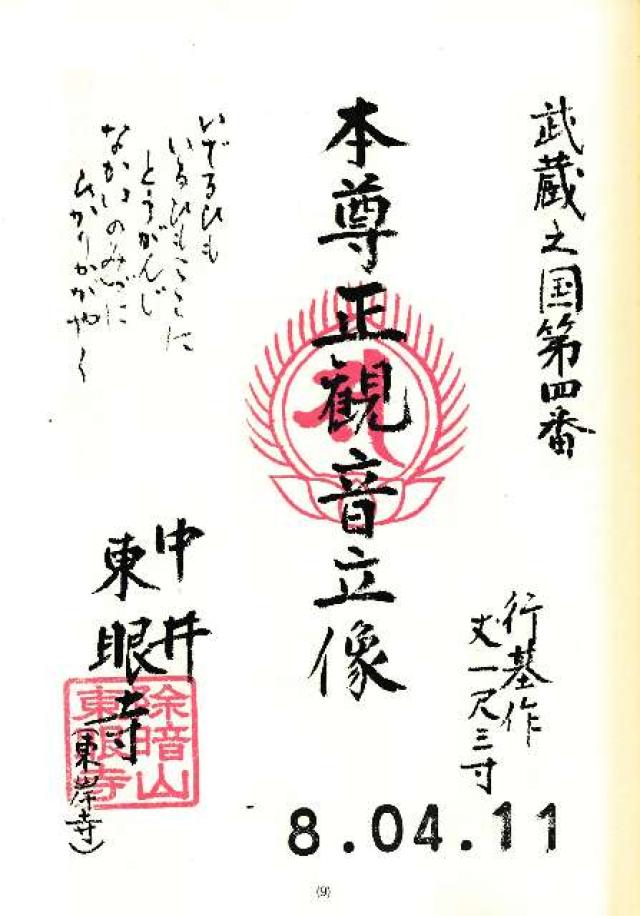 武蔵之国第四番
行基作
丈一尺三寸
本尊正観音立像
いでるひも
いるひもここに
とうがんじ
なかいのみづに
ひかりかがやく
中井
東眼寺
(東岸寺)
除暗山
東眼寺
8.04.11
(9)